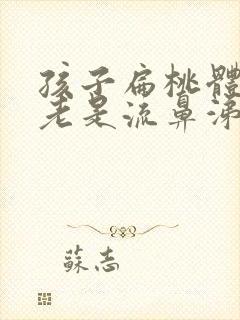 孩子扁桃體
老是流鼻涕
蘇志